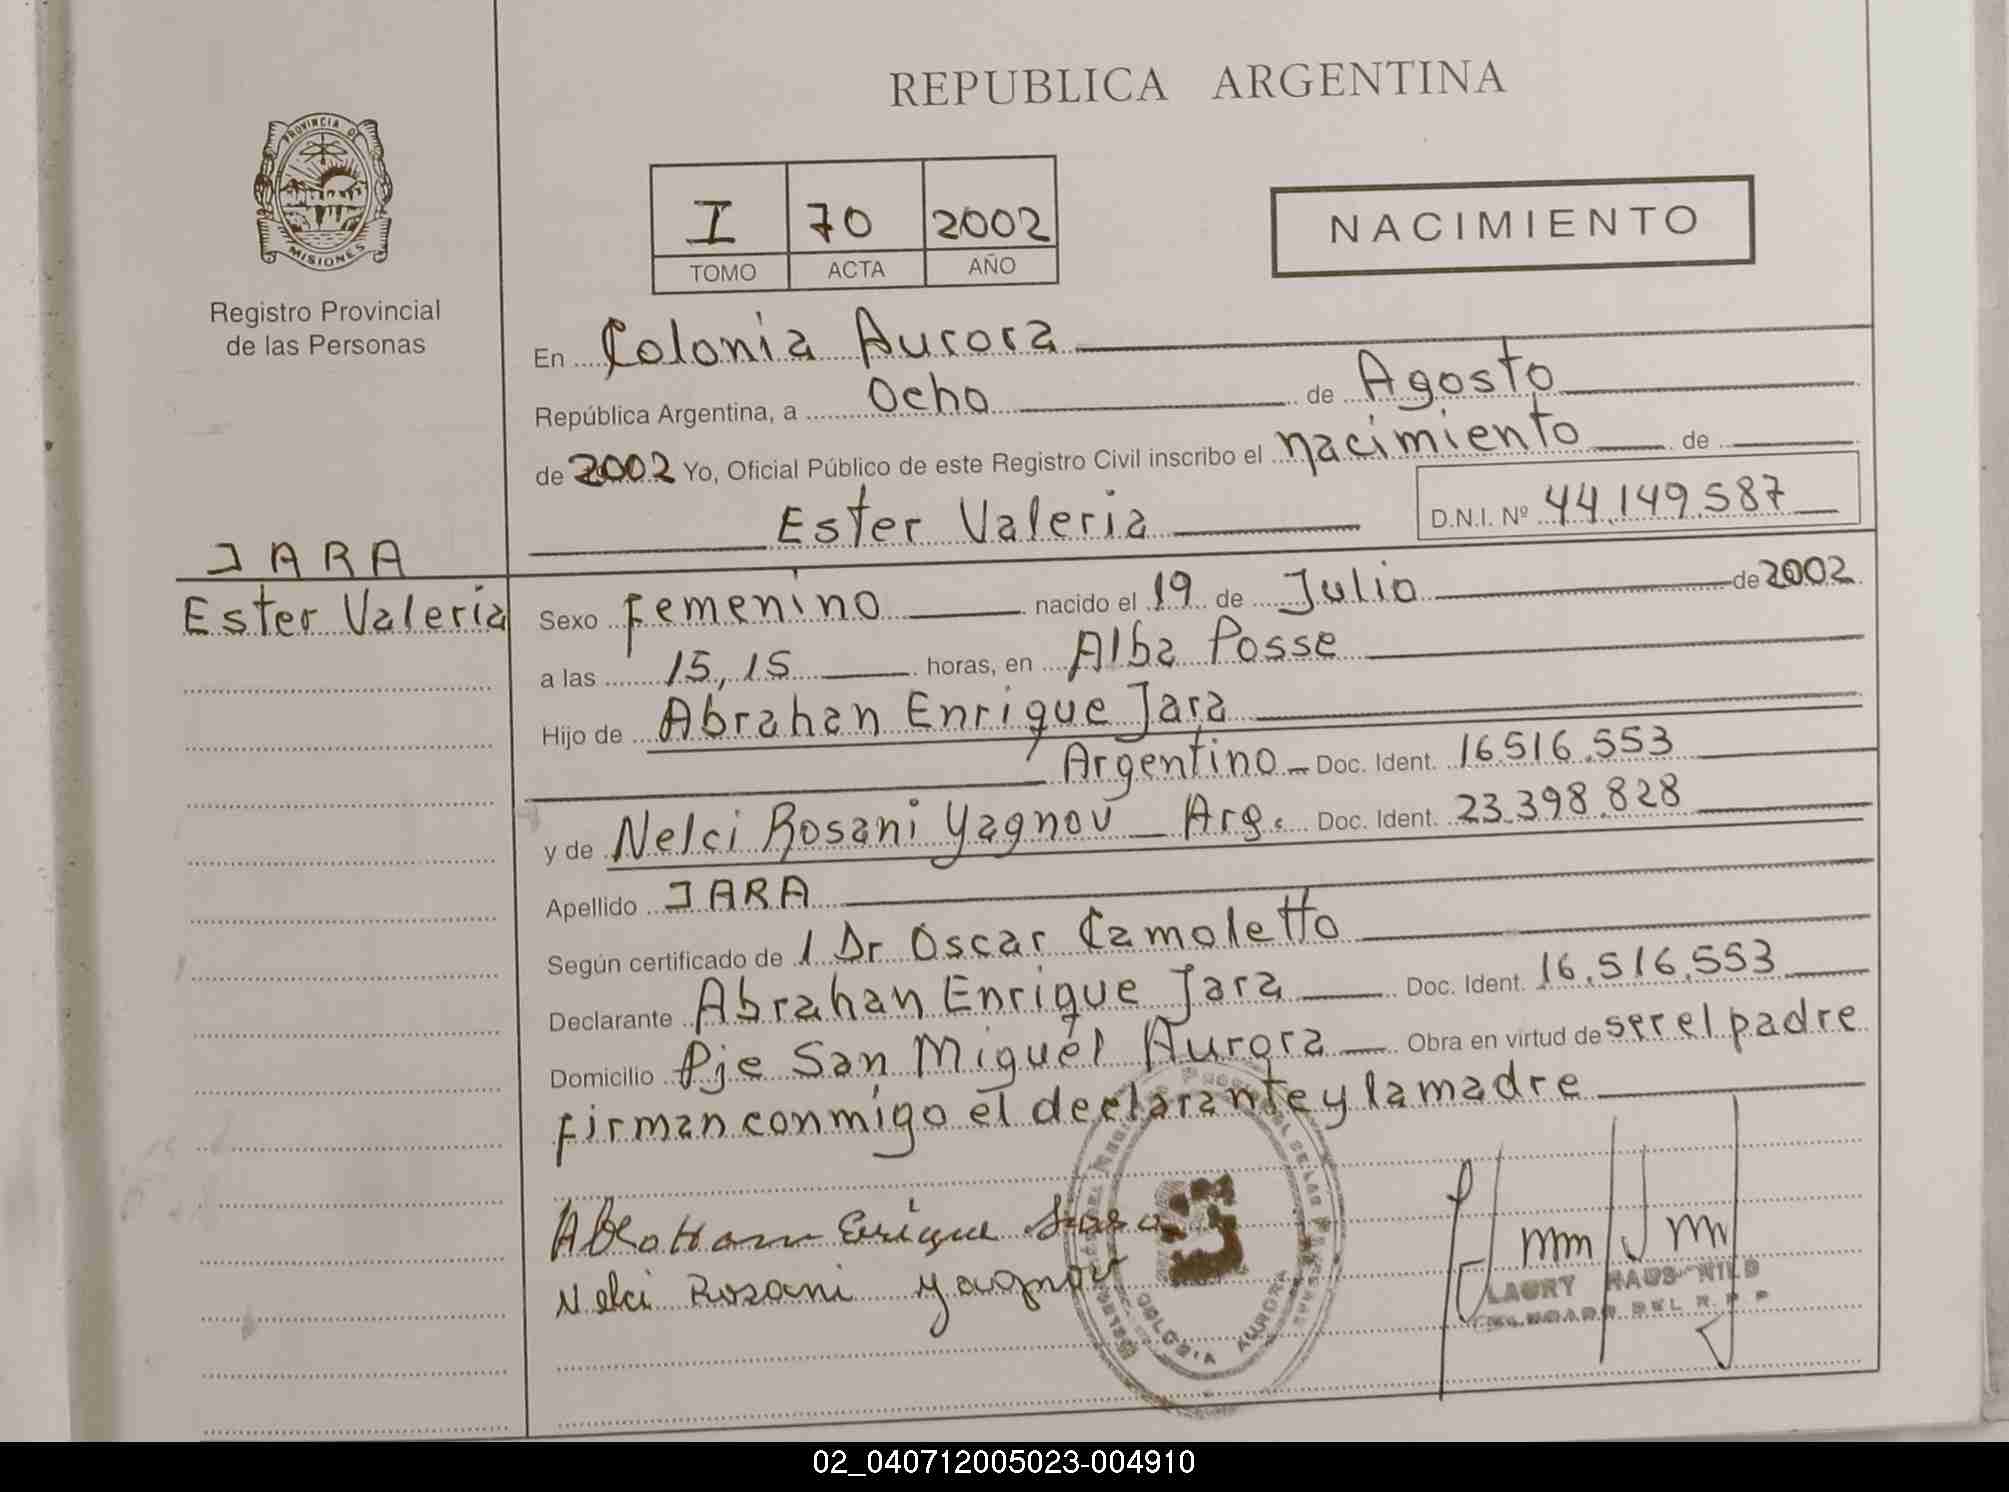 REPUBLICA ARGENTINA
PROVINCIA DE
MISIONES
Registro Provincial
de las Personas
I 70 2002
TOMO ACTA AÑO
NACIMIENTO
En Colonia Aurora
República Argentina, a Ocho de Agosto
de 2002 Yo, Oficial Público de este Registro Civil inscribo el nacimiento de
Ester Valeria D.N.I. Nº 44.149.587
JARA
Ester Valeria
Sexo Femenino nacido el 19 de Julio de 2002
a las 15,15 horas, en Alba Posse
Hijo de Abrahan Enrique Jara
Argentino Doc. Ident. 16.516.553
y de Nelci Rosani Yagnov Arg. Doc. Ident. 23.398.828
Apellido JARA
Según certificado de 1 Dr Oscar Camoletto
Declarante Abrahan Enrique Jara Doc. Ident. 16.516.553
Domicilio Pje San Miguel Aurora Obra en virtud de ser el padre
firman conmigo el declarante y la madre
Abraham Enrique Jara
Nelci Rosani Yagnov
COLONIA AURORA
LAURY
DEL R.P.P.
02_040712005023-004910